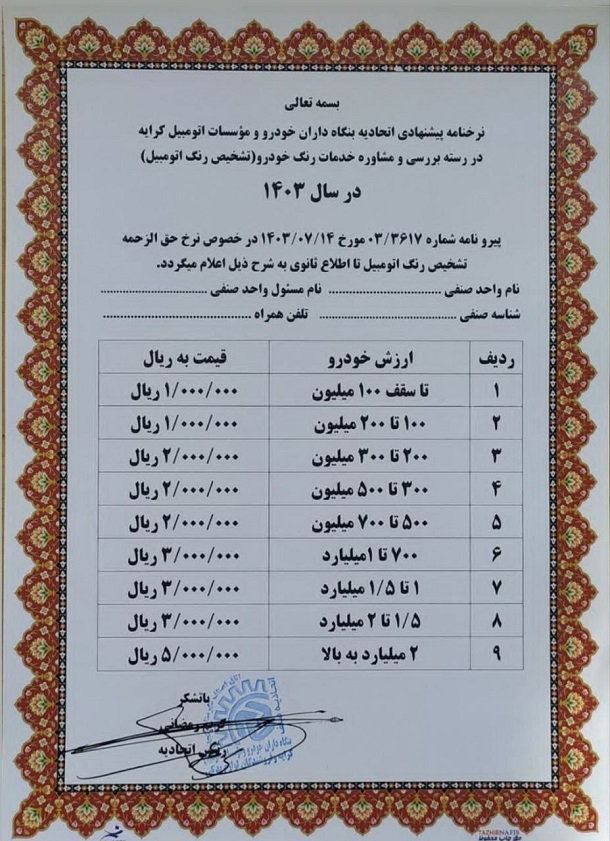 بسمه تعالی
نرخنامه پیشنهادی اتحادیه بنگاه داران خودرو و مؤسسات اتومبیل کرایه
در رسته بررسی و مشاوره خدمات رنگ خودرو(تشخیص رنگ اتومبیل)
در سال ۱۴۰۳
پیرو نامه شماره ۰۳/۳۶۱۷ مورخ ۱۴۰۳/۰۷/۱۴ در خصوص نرخ حق الزحمه
تشخیص رنگ اتومبیل تا اطلاع ثانوی به شرح ذیل اعلام میگردد.
نام واحد صنفی ........................... نام مسئول واحد صنفی ..........................
شناسه صنفی ................................. تلفن همراه ....................................
ردیف ارزش خودرو قیمت به ریال
۱ تا سقف ۱۰۰ میلیون ۱/۰۰۰/۰۰۰ ریال
۲ ۱۰۰ تا ۲۰۰ میلیون ۱/۰۰۰/۰۰۰ ریال
۳ ۲۰۰ تا ۳۰۰ میلیون ۲/۰۰۰/۰۰۰ ریال
۴ ۳۰۰ تا ۵۰۰ میلیون ۲/۰۰۰/۰۰۰ ریال
۵ ۵۰۰ تا ۷۰۰ میلیون ۲/۰۰۰/۰۰۰ ریال
۶ ۷۰۰ تا ۱میلیارد ۳/۰۰۰/۰۰۰ ریال
۷ ۱ تا ۱/۵ میلیارد ۳/۰۰۰/۰۰۰ ریال
۸ ۱/۵ تا ۲ میلیارد ۳/۰۰۰/۰۰۰ ریال
۹ ۲ میلیارد به بالا ۵/۰۰۰/۰۰۰ ریال
باتشکر
کریم رمضانی
رئیس اتحادیه
TAZHIBNAFIS
حق چاپ محفوظ